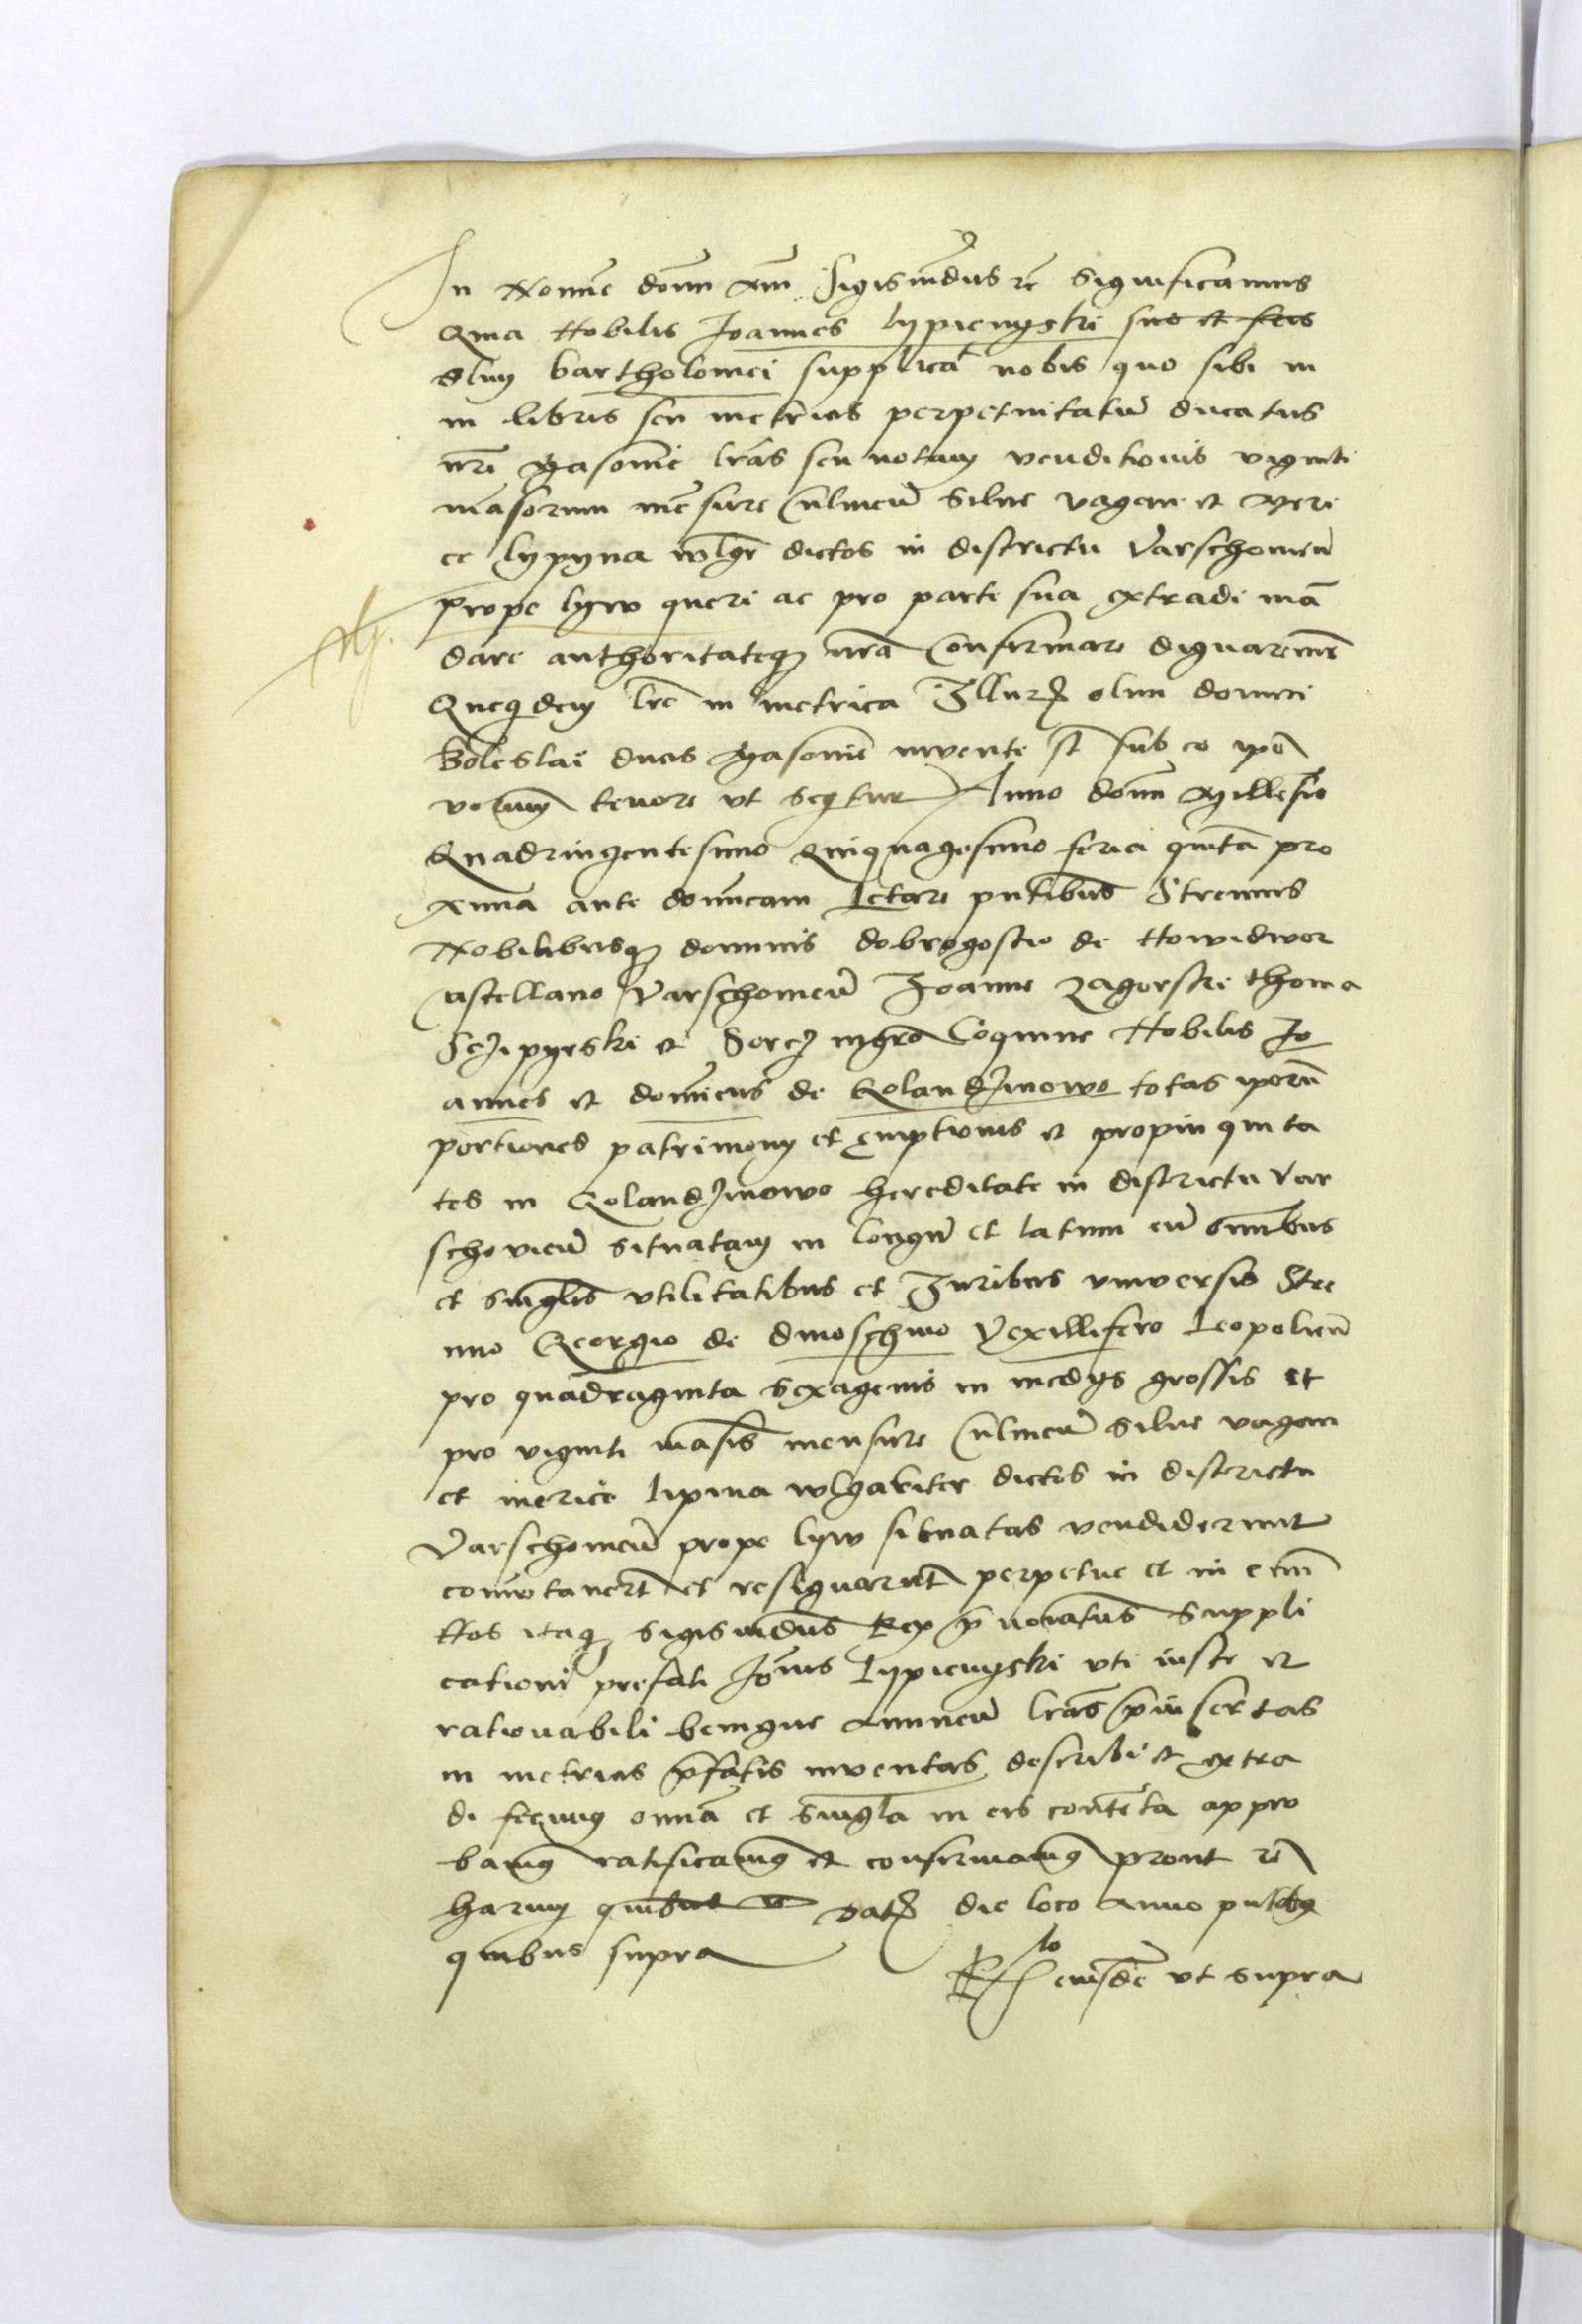 In Nomine domini amen Sigismundus etc significamus
Quia Nobilis Joannes Lypienyski suo et fris
olim bartholomei supplicat nobis quo sibi in
in libris seu metricis perpetuitatum ducatus
nri Masovie lras seu notam venditionis viginti
mansorum mensure Culmen silve vagan et meri
ce lypyna wlgr dictos in districtu Varschovien
prope lyw queri ac pro parte sua extradi man
dare authoritateq nra Confirmare dignaremur
Quequidem lre in metrica Illur olim domini
Boleslai ducis Masovie invente st sub eo ipo
verum tenore ut sequitur Anno domini Millesimo
Quadringentesimo Quinquagesimo feria quinta pro
xima ante dominicam Letare pntibus Strenuis
Nobilibusq dominis dobrogostio de Nowidwor
Castellano Varschovien Joanne Zagorski thoma
Sczipyrski et mgro Coquine Nobilis Jo
annes et dominicus de Golandzinowo totas ipsorum
portiones patrimony et emptionis et propinquita
tes in Golandzinowo hereditate in districtu Var
schovien situatam in longum et latum cum omnibus
et singulis utilitatibus et Juribus universis Stre
nuo Georgio de dmoschino Vexillifero Leopolien
pro quadraginta sexagenis in medys grossis et
pro viginti mansis mensure Culmen silve vagan
et merice lipina wlgariter dictos in districtu
Varschovien prope lyw situatas vendiderunt
comutavert et resignarunt perpetue et in evum
Nos itaq sigismundus Rex prenoiatus suppli
cationi prefati Joannis Lypienyski uti iuste et
rationabili benigne annuen lras preinsertas
in metricis prefatis inventas describi et extra
di fecimus omnia et singula in eis contenta appro
bamus ratificamus et confirmamus prout etc
harum quibus dat die loco anno pntibus
quibus supra
Rlo eiusdem ut supra